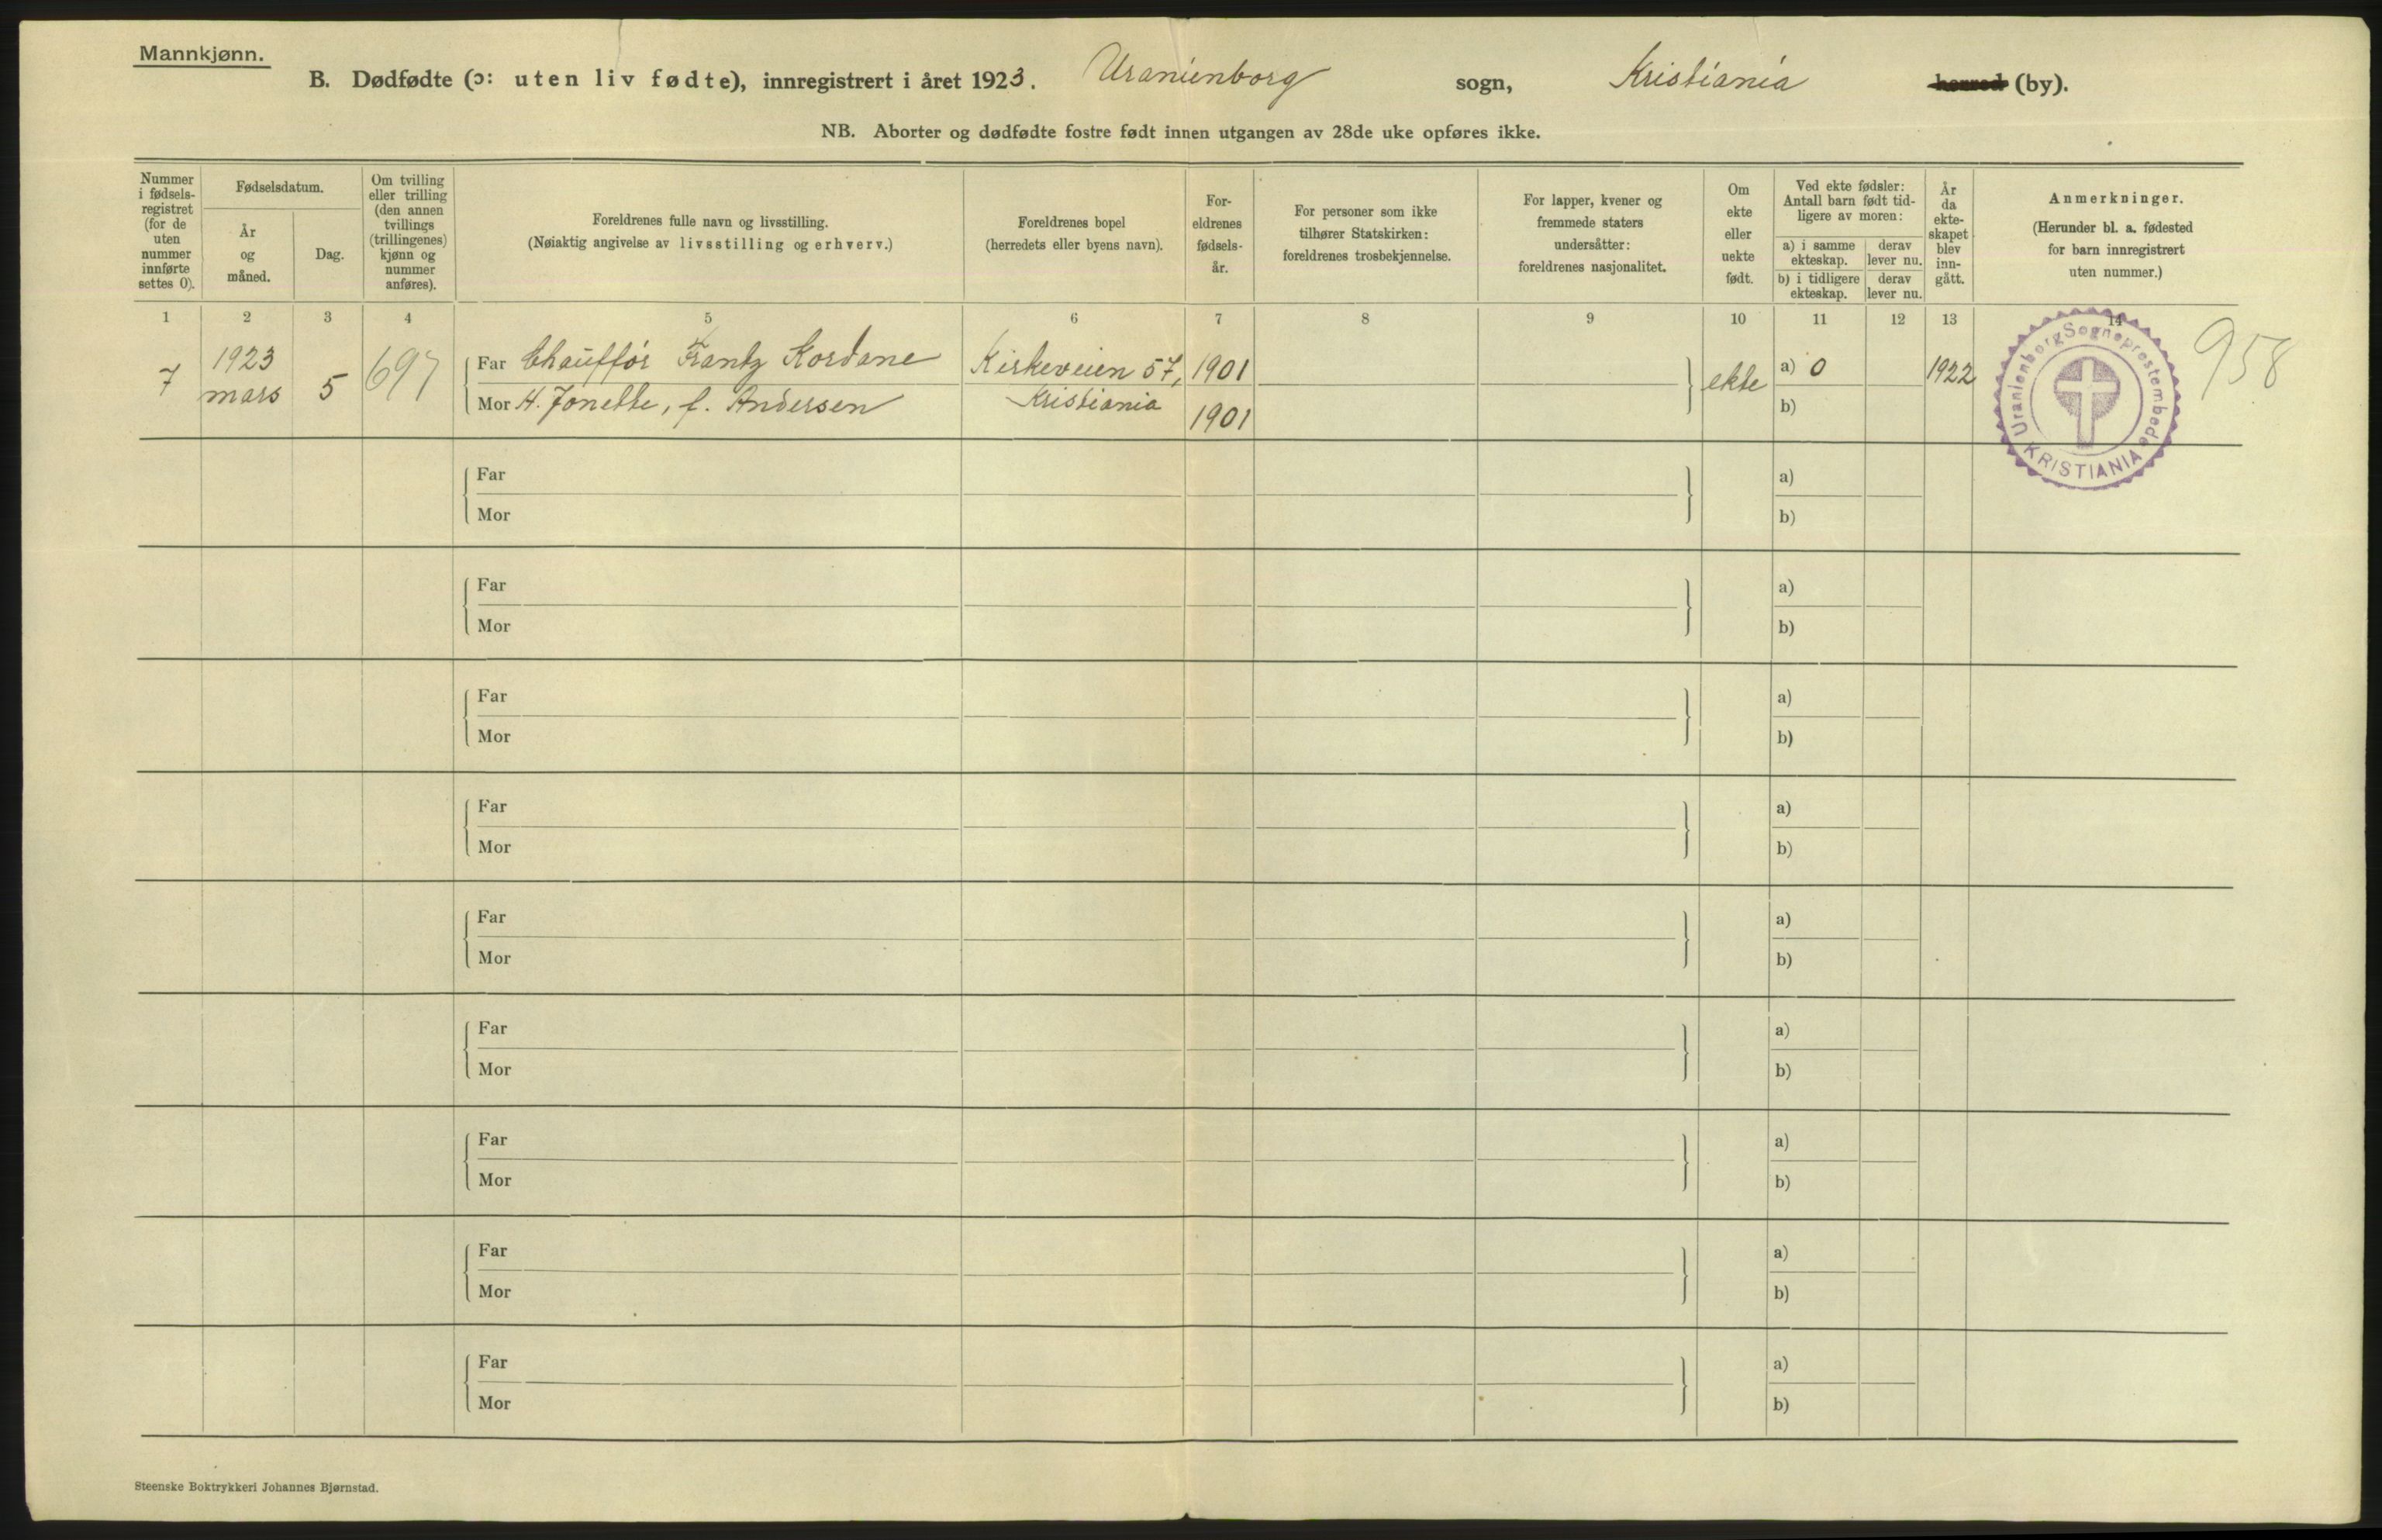 Mannkjønn.
B. Dødfødte (ɔ: uten liv fødte), innregistrert i året 1923. Uranienborg sogn, Kristiania herred (by).
NB. Aborter og dødfødte fostre født innen utgangen av 28de uke opføres ikke.
Nummer i fødsels-registret (for de uten nummer innførte settes 0).
Fødselsdatum.
År og måned.
Dag.
Om tvilling eller trilling (den annen tvillings (trillingenes) kjønn og nummer anføres).
Foreldrenes fulle navn og livsstilling.
(Nøiaktig angivelse av livsstilling og erhverv.)
Foreldrenes bopel
(herredets eller byens navn).
For-eldrenes fødsels-år.
For personer som ikke tilhører Statskirken: foreldrenes trosbekjennelse.
For lapper, kvener og fremmede staters undersåtter: foreldrenes nasjonalitet.
Om ekte eller uekte født.
Ved ekte fødsler: Antall barn født tid-ligere av moren:
a) i samme ekteskap.
derav lever nu.
b) i tidligere ekteskap.
derav lever nu.
År da ekte-skapet blev inn-gått.
Anmerkninger.
(Herunder bl. a. fødested for barn innregistrert uten nummer.)
1 2 3 4 5 6 7 8 9 10 11 12 13 14
7 1923 mars 5 697
Far Chauffør Frantz Kordane Kirkeveien 57, 1901 ekte a) 0 1922 958
Mor H. Jonette, f. Andersen Kristiania 1901 b)
Uranienborg Sogneprestembede
KRISTIANIA
Far a)
Mor b)
Far a)
Mor b)
Far a)
Mor b)
Far a)
Mor b)
Far a)
Mor b)
Far a)
Mor b)
Far a)
Mor b)
Far a)
Mor b)
Far a)
Mor b)
Steenske Boktrykkeri Johannes Bjørnstad.